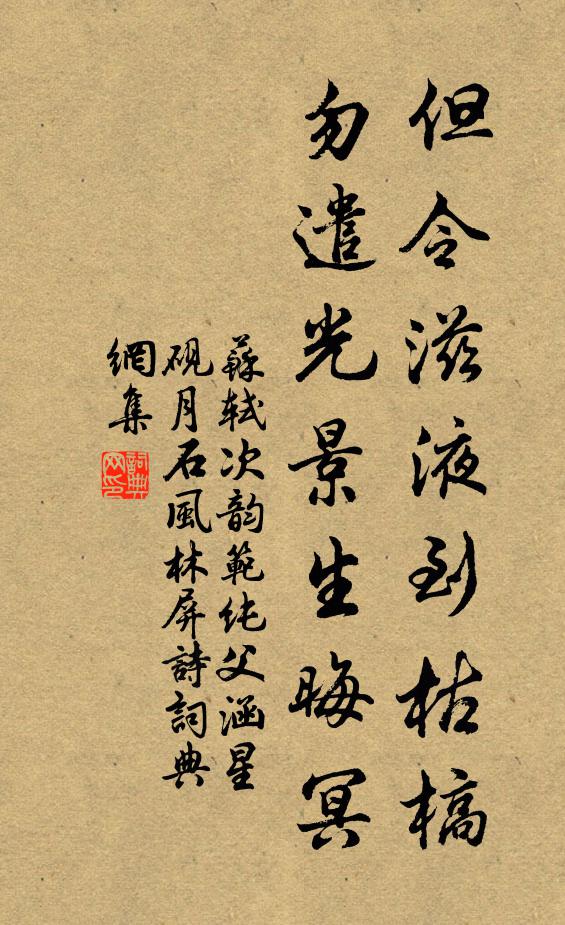 但令滋液到枯槁
勿遣光景生晦冥
蘇軾次韵範純父涵星
硯月石風林屏詩詞典
網集
詞典
网印